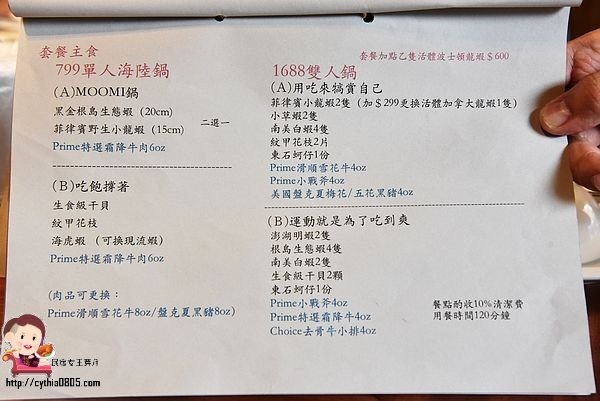 套餐主食
799單人海陸鍋
(A)MOOMI鍋
黑金根島生態蝦 (20cm)
菲律賓野生小龍蝦 (15cm)
二選一
Prime特選霜降牛肉6oz
(B)吃飽撐著
生食級干貝
紋甲花枝
海虎蝦 (可換現流蝦)
Prime特選霜降牛肉6oz
(肉品可更換：
Prime滑順雪花牛8oz/盤克夏黑豬8oz)
套餐加點乙隻活體波士頓龍蝦$600
1688雙人鍋
(A)用吃來犒賞自己
菲律賓小龍蝦2隻 (加$299更換活體加拿大龍蝦1隻)
小草蝦2隻
南美白蝦4隻
紋甲花枝2片
東石蚵仔1份
Prime滑順雪花牛4oz
Prime小戰斧4oz
美國盤克夏梅花/五花黑豬4oz
(B)運動就是為了吃到爽
澎湖明蝦2隻
根島生態蝦4隻
南美白蝦2隻
生食級干貝2顆
東石蚵仔1份
Prime小戰斧4oz
Prime特選霜降牛4oz
Choice去骨牛小排4oz
餐點酌收10%清潔費
用餐時間120分鐘
民宿女王芽月
http://cythia0805.com